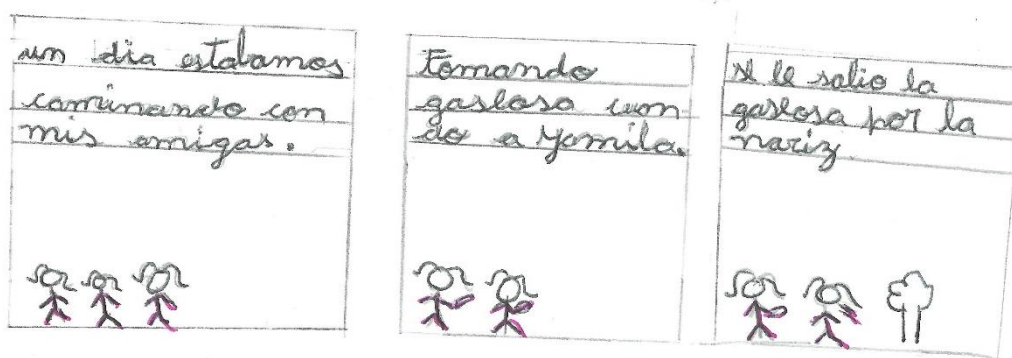 un dia estabamos
caminando con
mis amigas.
tomando
gaseosa cuan
do a yamila.
se le salio la
gaseosa por la
nariz.